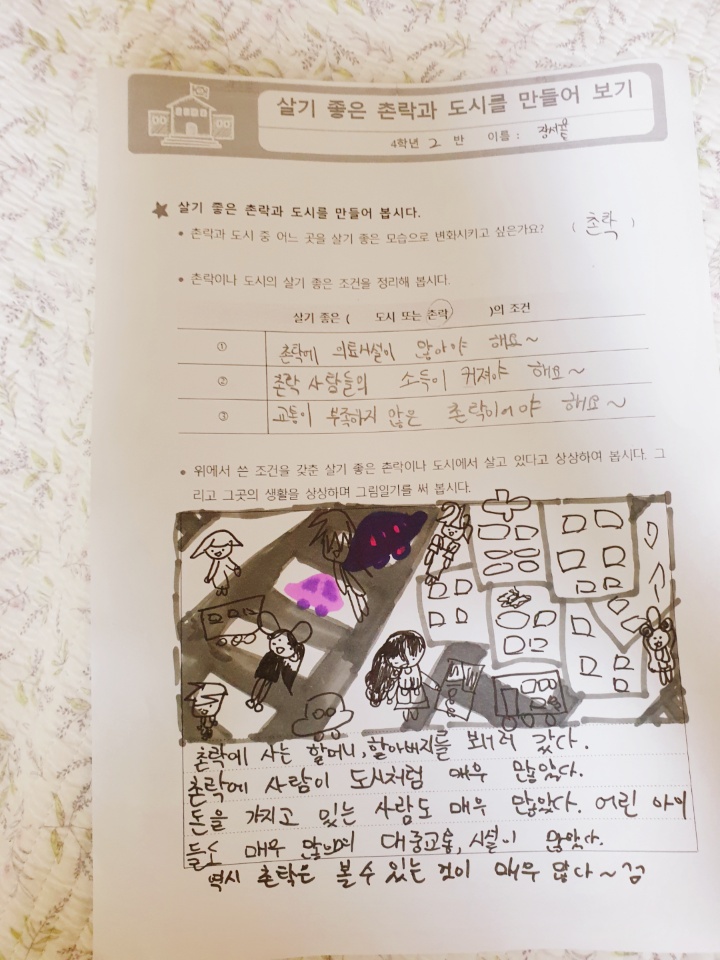 살기 좋은 촌락과 도시를 만들어 보기
4학년 2 반 이름 : 장서윤
살기 좋은 촌락과 도시를 만들어 봅시다.
• 촌락과 도시 중 어느 곳을 살기 좋은 모습으로 변화시키고 싶은가요? ( 촌락 )
• 촌락이나 도시의 살기 좋은 조건을 정리해 봅시다.
살기 좋은 ( 도시 또는 촌락 )의 조건
① 촌락에 의료시설이 많아야 해요~
② 촌락 사람들의 소득이 커져야 해요~
③ 교통이 부족하지 않은 촌락이어야 해요~
• 위에서 쓴 조건을 갖춘 살기 좋은 촌락이나 도시에서 살고 있다고 상상하여 봅시다. 그
리고 그곳의 생활을 상상하며 그림일기를 써 봅시다.
촌락에 사는 할머니, 할아버지를 뵈러 갔다.
촌락에 사람이 도시처럼 매우 많았다.
돈을 가지고 있는 사람도 매우 많았다. 어린 아이
들도 매우 많으며 대중교통, 시설이 많았다.
역시 촌락은 볼 수 있는 것이 매우 많다~ 끔